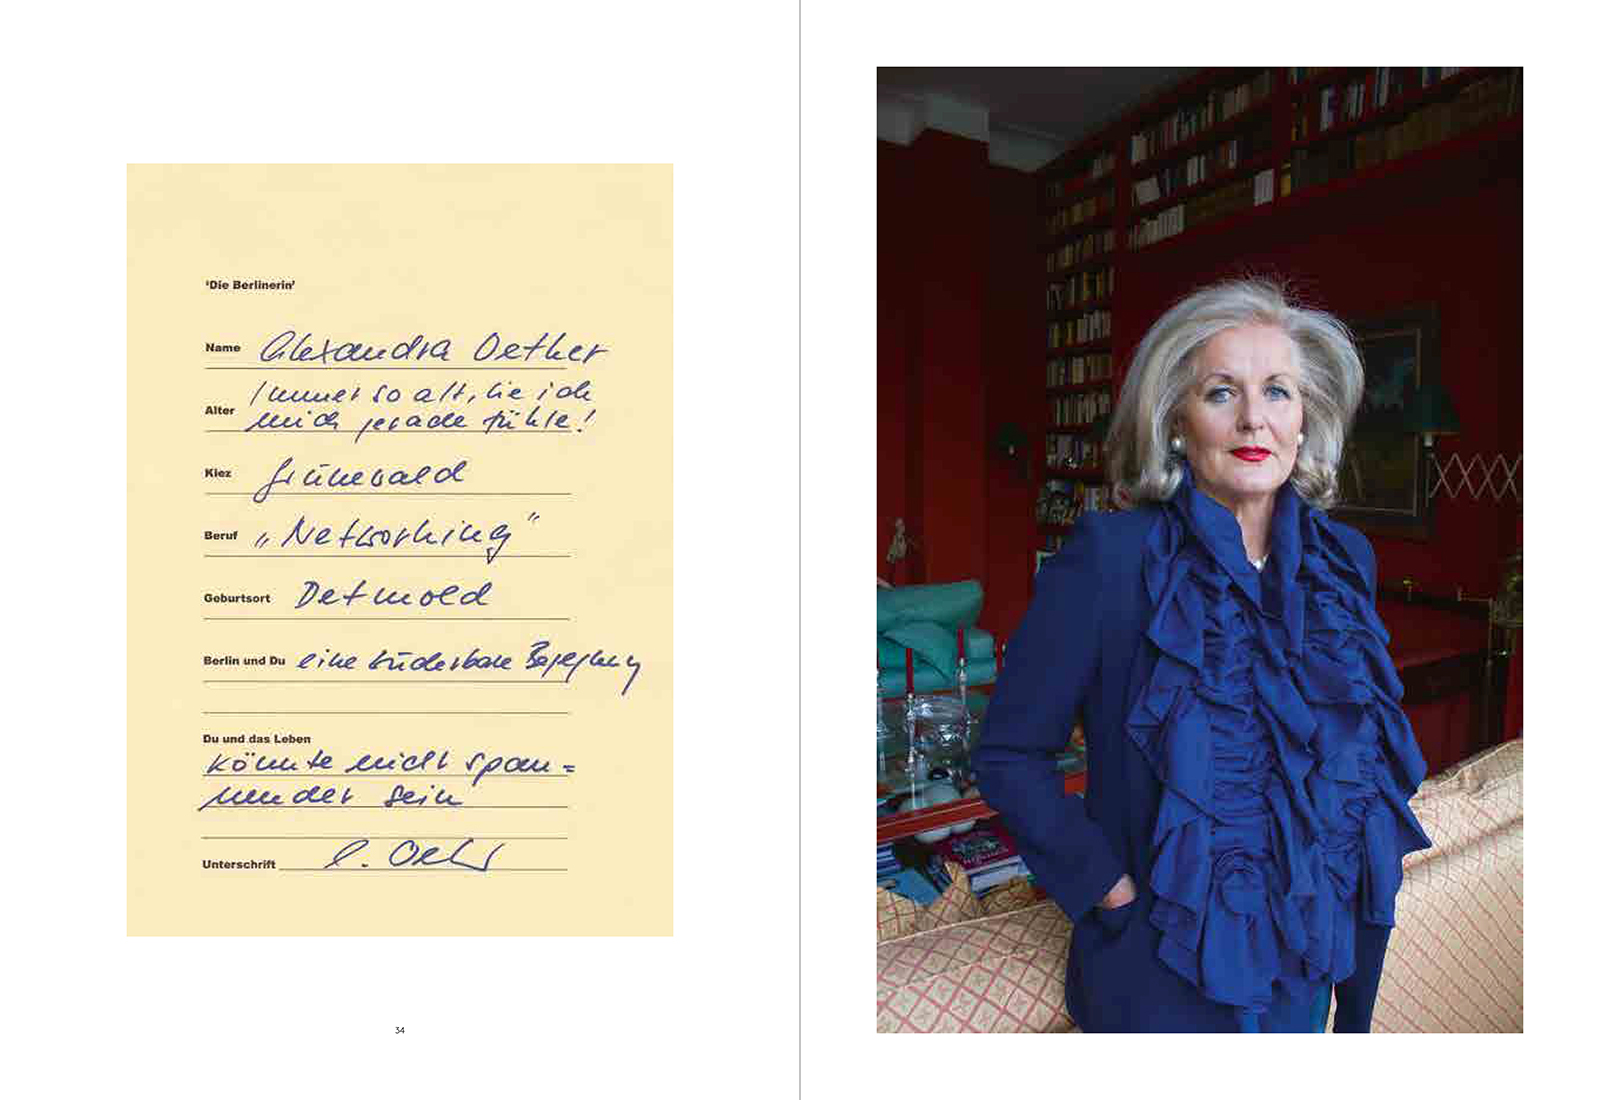 'Die Berlinerin'
Name Alexandra Oetker
Immer so alt, wie ich
Alter mich gerade fühle!
Kiez Grunewald
Beruf „Networking"
Geburtsort Detmold
Berlin und Du eine wunderbare Begegnung
Du und das Leben
könnte nicht span=
nender sein
Unterschrift A. Oetker
34